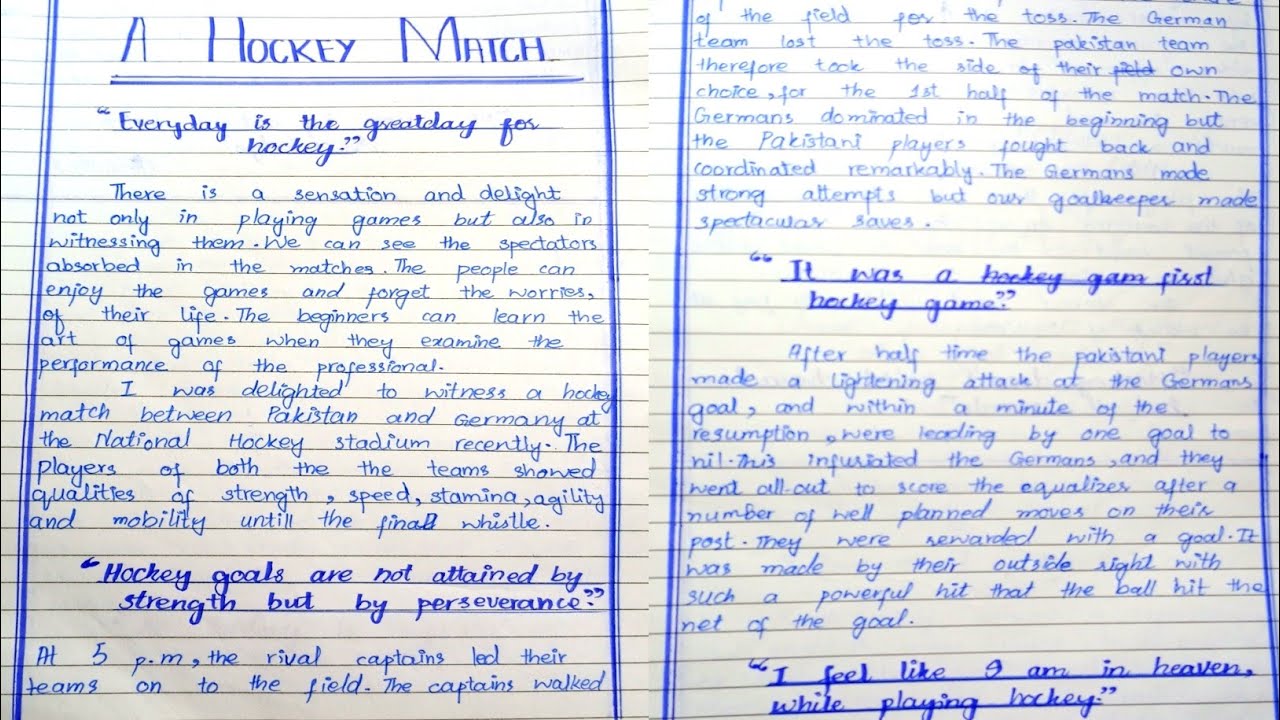 A HOCKEY MATCH
"Everyday is the greatday for
hockey."
There is a sensation and delight
not only in playing games but also in
witnessing them. We can see the spectators
absorbed in the matches. The people can
enjoy the games and forget the worries,
of their life. The beginners can learn the
art of games when they examine the
performance of the professional.
I was delighted to witness a hockey
match between Pakistan and Germany at
the National Hockey stadium recently. The
players of both the the teams showed
qualities of strength, speed, stamina, agility
and mobility untill the final whistle.
"Hockey goals are not attained by
strength but by perseverance."
At 5 p.m, the rival captains led their
teams on to the field. The captains walked
of the field for the toss. The German
team lost the toss. The pakistan team
therefore took the side of their field own
choice, for the 1st half of the match. The
Germans dominated in the beginning but
the Pakistani players fought back and
coordinated remarkably. The Germans made
strong attempts but our goalkeeper made
spectacular saves.
"It was a hockey gam first
hockey game."
After half time the pakistani players
made a lightening attack at the Germans
goal, and within a minute of the
resumption, were leading by one goal to
nil. This infuriated the Germans, and they
went all-out to score the equalizer after a
number of well planned moves on their
post. They were rewarded with a goal. It
was made by their outside right with
such a powerful hit that the ball hit the
net of the goal.
"I feel like I am in heaven,
while playing hockey."